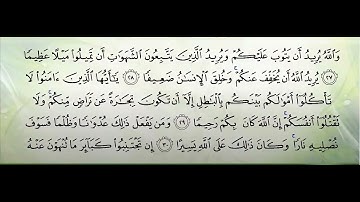 وَاللَّهُ يُرِيدُ أَن يَتُوبَ عَلَيْكُمْ وَيُرِيدُ الَّذِينَ يَتَّبِعُونَ الشَّهَوَاتِ أَن تَمِيلُوا مَيْلًا عَظِيمًا
٢٧ يُرِيدُ اللَّهُ أَن يُخَفِّفَ عَنكُمْ وَخُلِقَ الْإِنسَانُ ضَعِيفًا ٢٨ يَا أَيُّهَا الَّذِينَ آمَنُوا لَا
تَأْكُلُوا أَمْوَالَكُم بَيْنَكُم بِالْبَاطِلِ إِلَّا أَن تَكُونَ تِجَارَةً عَن تَرَاضٍ مِّنكُمْ وَلَا
تَقْتُلُوا أَنفُسَكُمْ إِنَّ اللَّهَ كَانَ بِكُمْ رَحِيمًا ٢٩ وَمَن يَفْعَلْ ذَلِكَ عُدْوَانًا وَظُلْمًا فَسَوْفَ
نُصْلِيهِ نَارًا وَكَانَ ذَلِكَ عَلَى اللَّهِ يَسِيرًا ٣٠ إِن تَجْتَنِبُوا كَبَائِرَ مَا تُنْهَوْنَ عَنْهُ